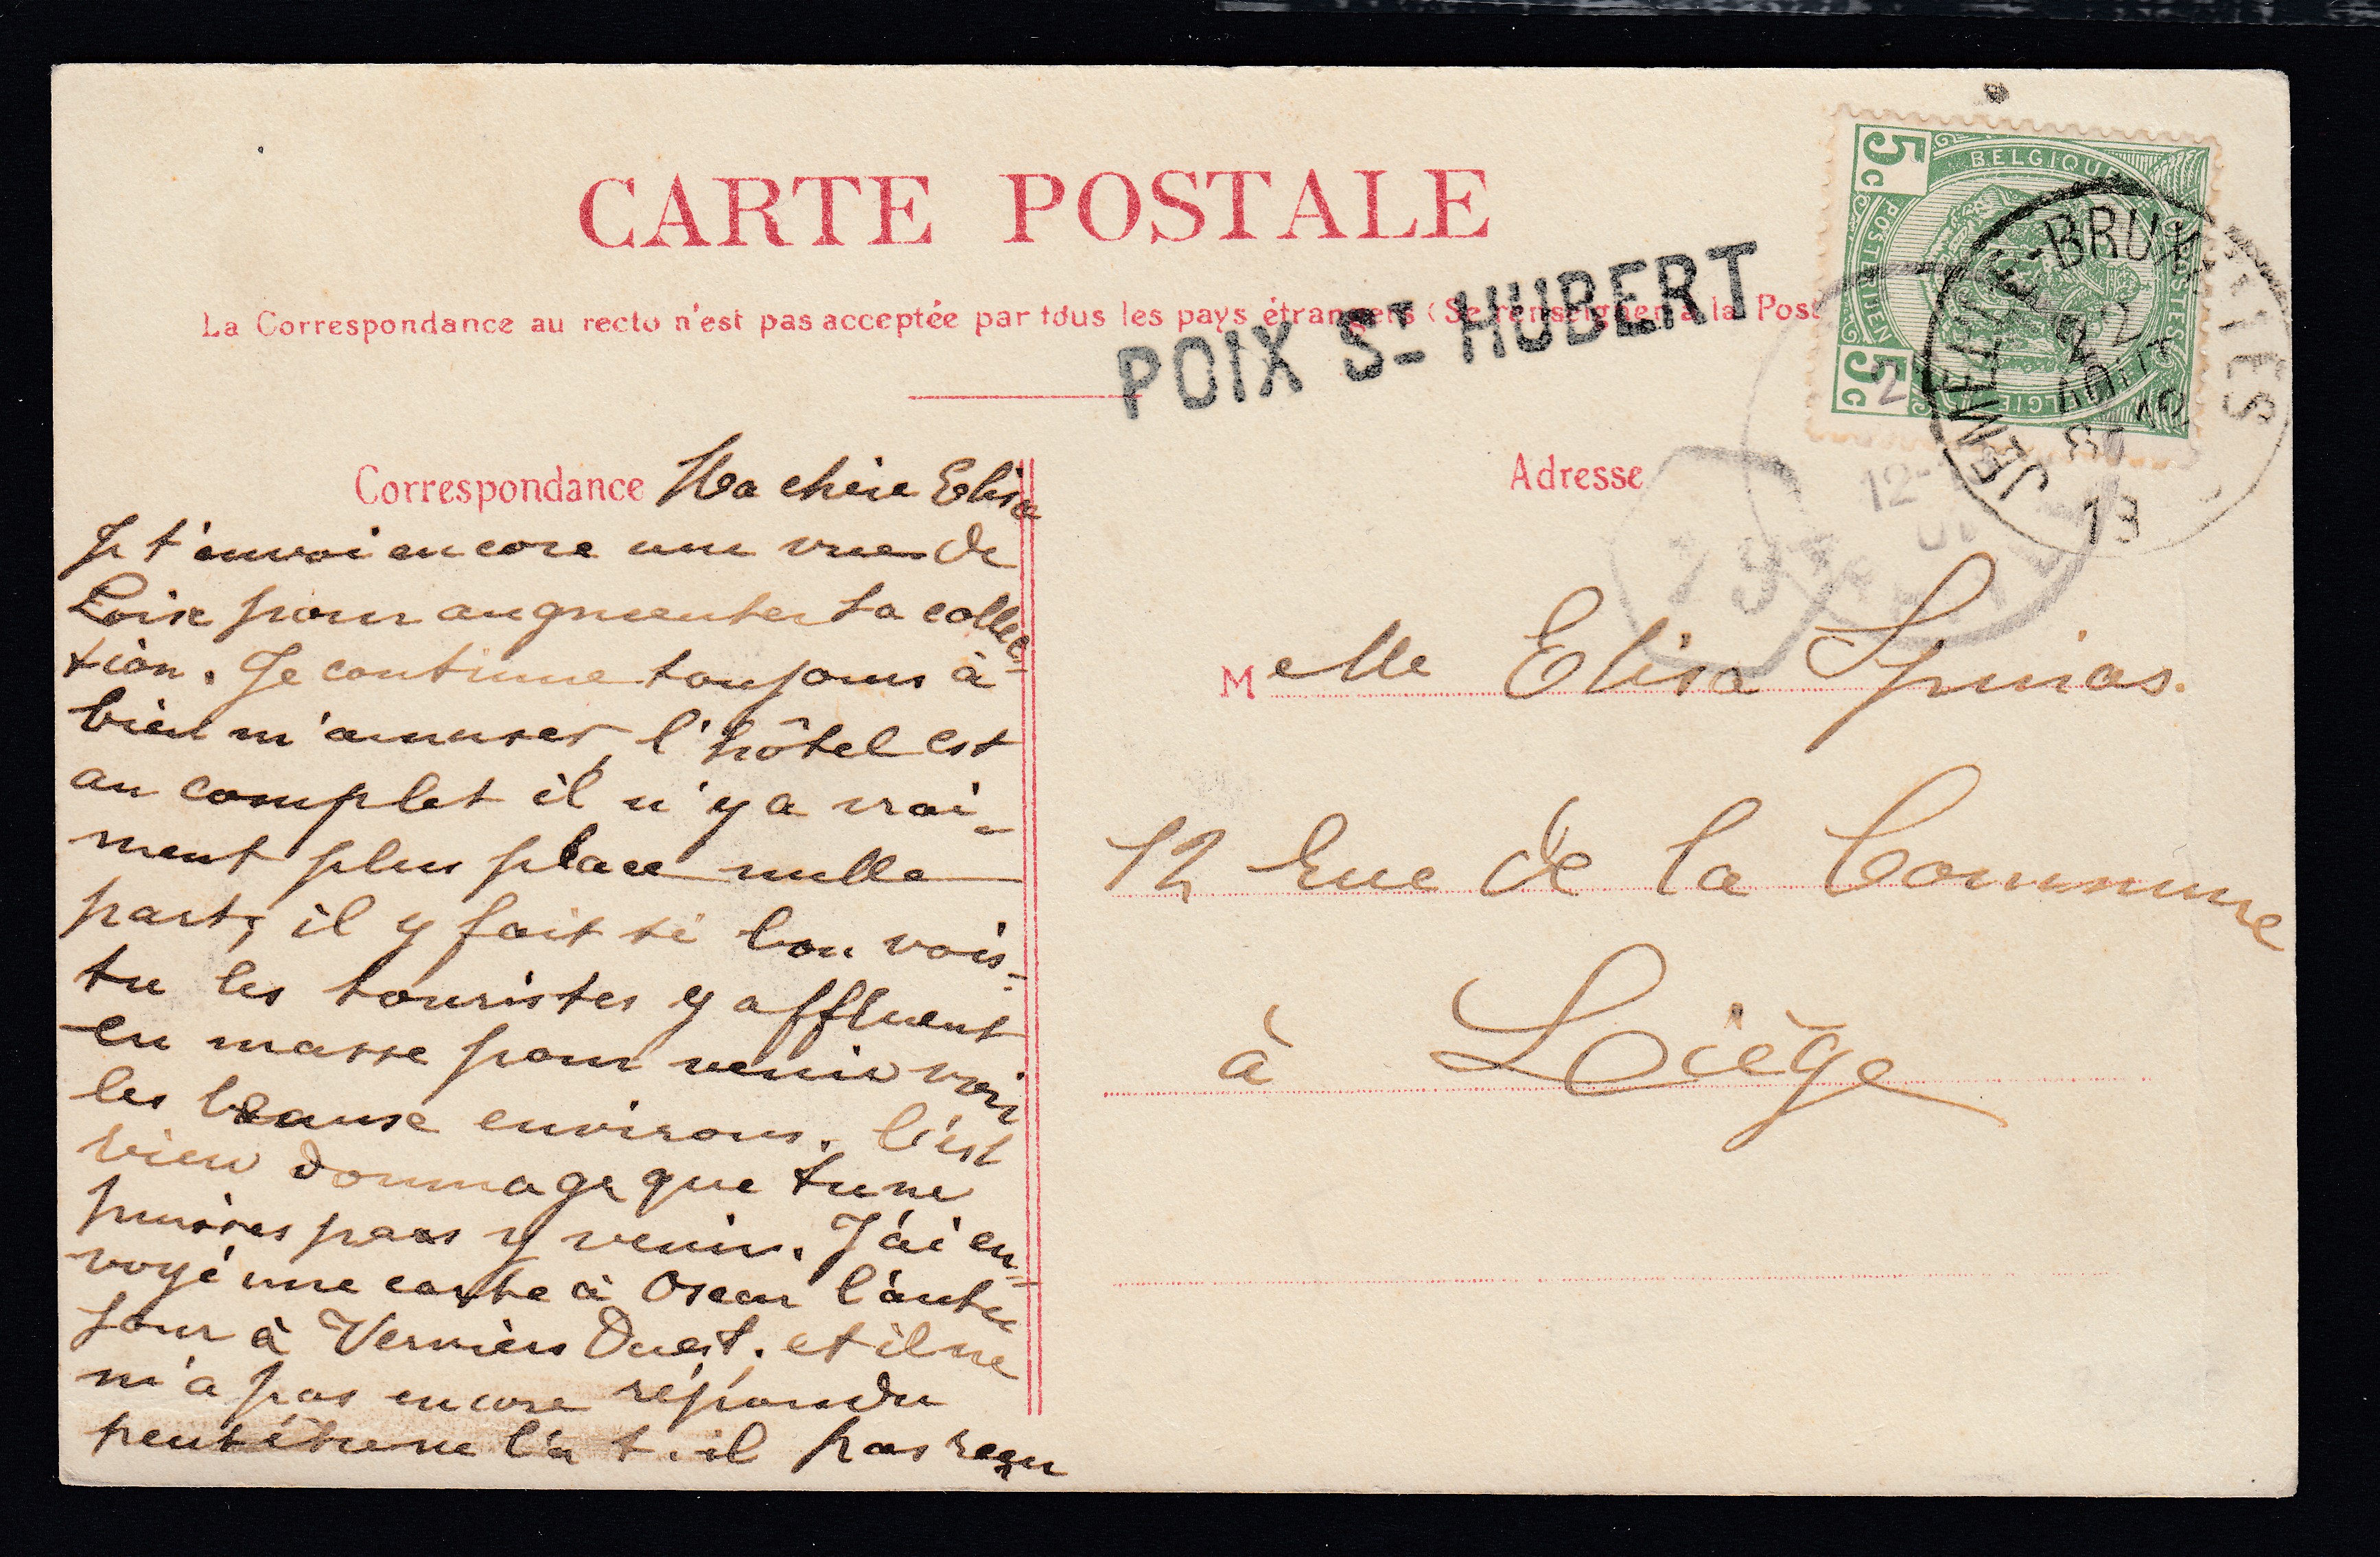 CARTE POSTALE
La Correspondance au recto n'est pas acceptée par tous les pays étrangers (Se renseigner à la Post
POIX ST HUBERT
5c
BELGIQUE
POSTES
POSTERIJEN
BELGIE
5c
JEMELLE-BRUXELLES
22
AOUT
13
12-
Correspondance Ma chère Elisa
Je t'envoi encore une vue de
Poix pour augmenter ta collec-
tion. Je continue toujours à
bien m'amuser, l'hôtel est
au complet il n'y a vrai-
ment plus place nulle
part, il y fait si bon vois-
tu les touristes y affluent
en masse pour venir voir
les beaux environs. C'est
bien dommage que tu ne
puisses pas y venir. J'ai en-
voyé une carte à Oscar l'autre
jour à Verviers Ouest. et il ne
m'a pas encore répondu
peut être ne l'a t-il pas reçu
Adresse
Melle Elisa
12 Rue de la Commune
à Liège